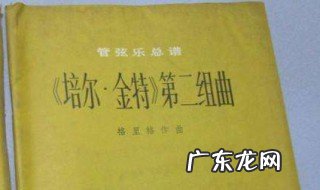 管弦乐总谱
《培尔·金特》第二组曲
格里格作曲
广东龙网